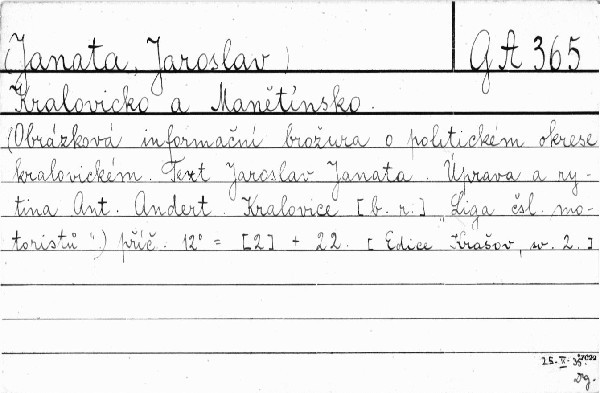 (Janata, Jaroslav) GA 365
Kralovicko a Manětínsko.
(Obrázková informační brožura o politickém okrese
kralovickém. Text Jaroslav Janata. Úprava a ry-
tina Ant. Andert. Kralovice [b. r.] „Liga čsl. mo-
toristů“.) příč. 12° = [2] + 22. [Edice Krašov, sv. 2.]
25.-
Dg.